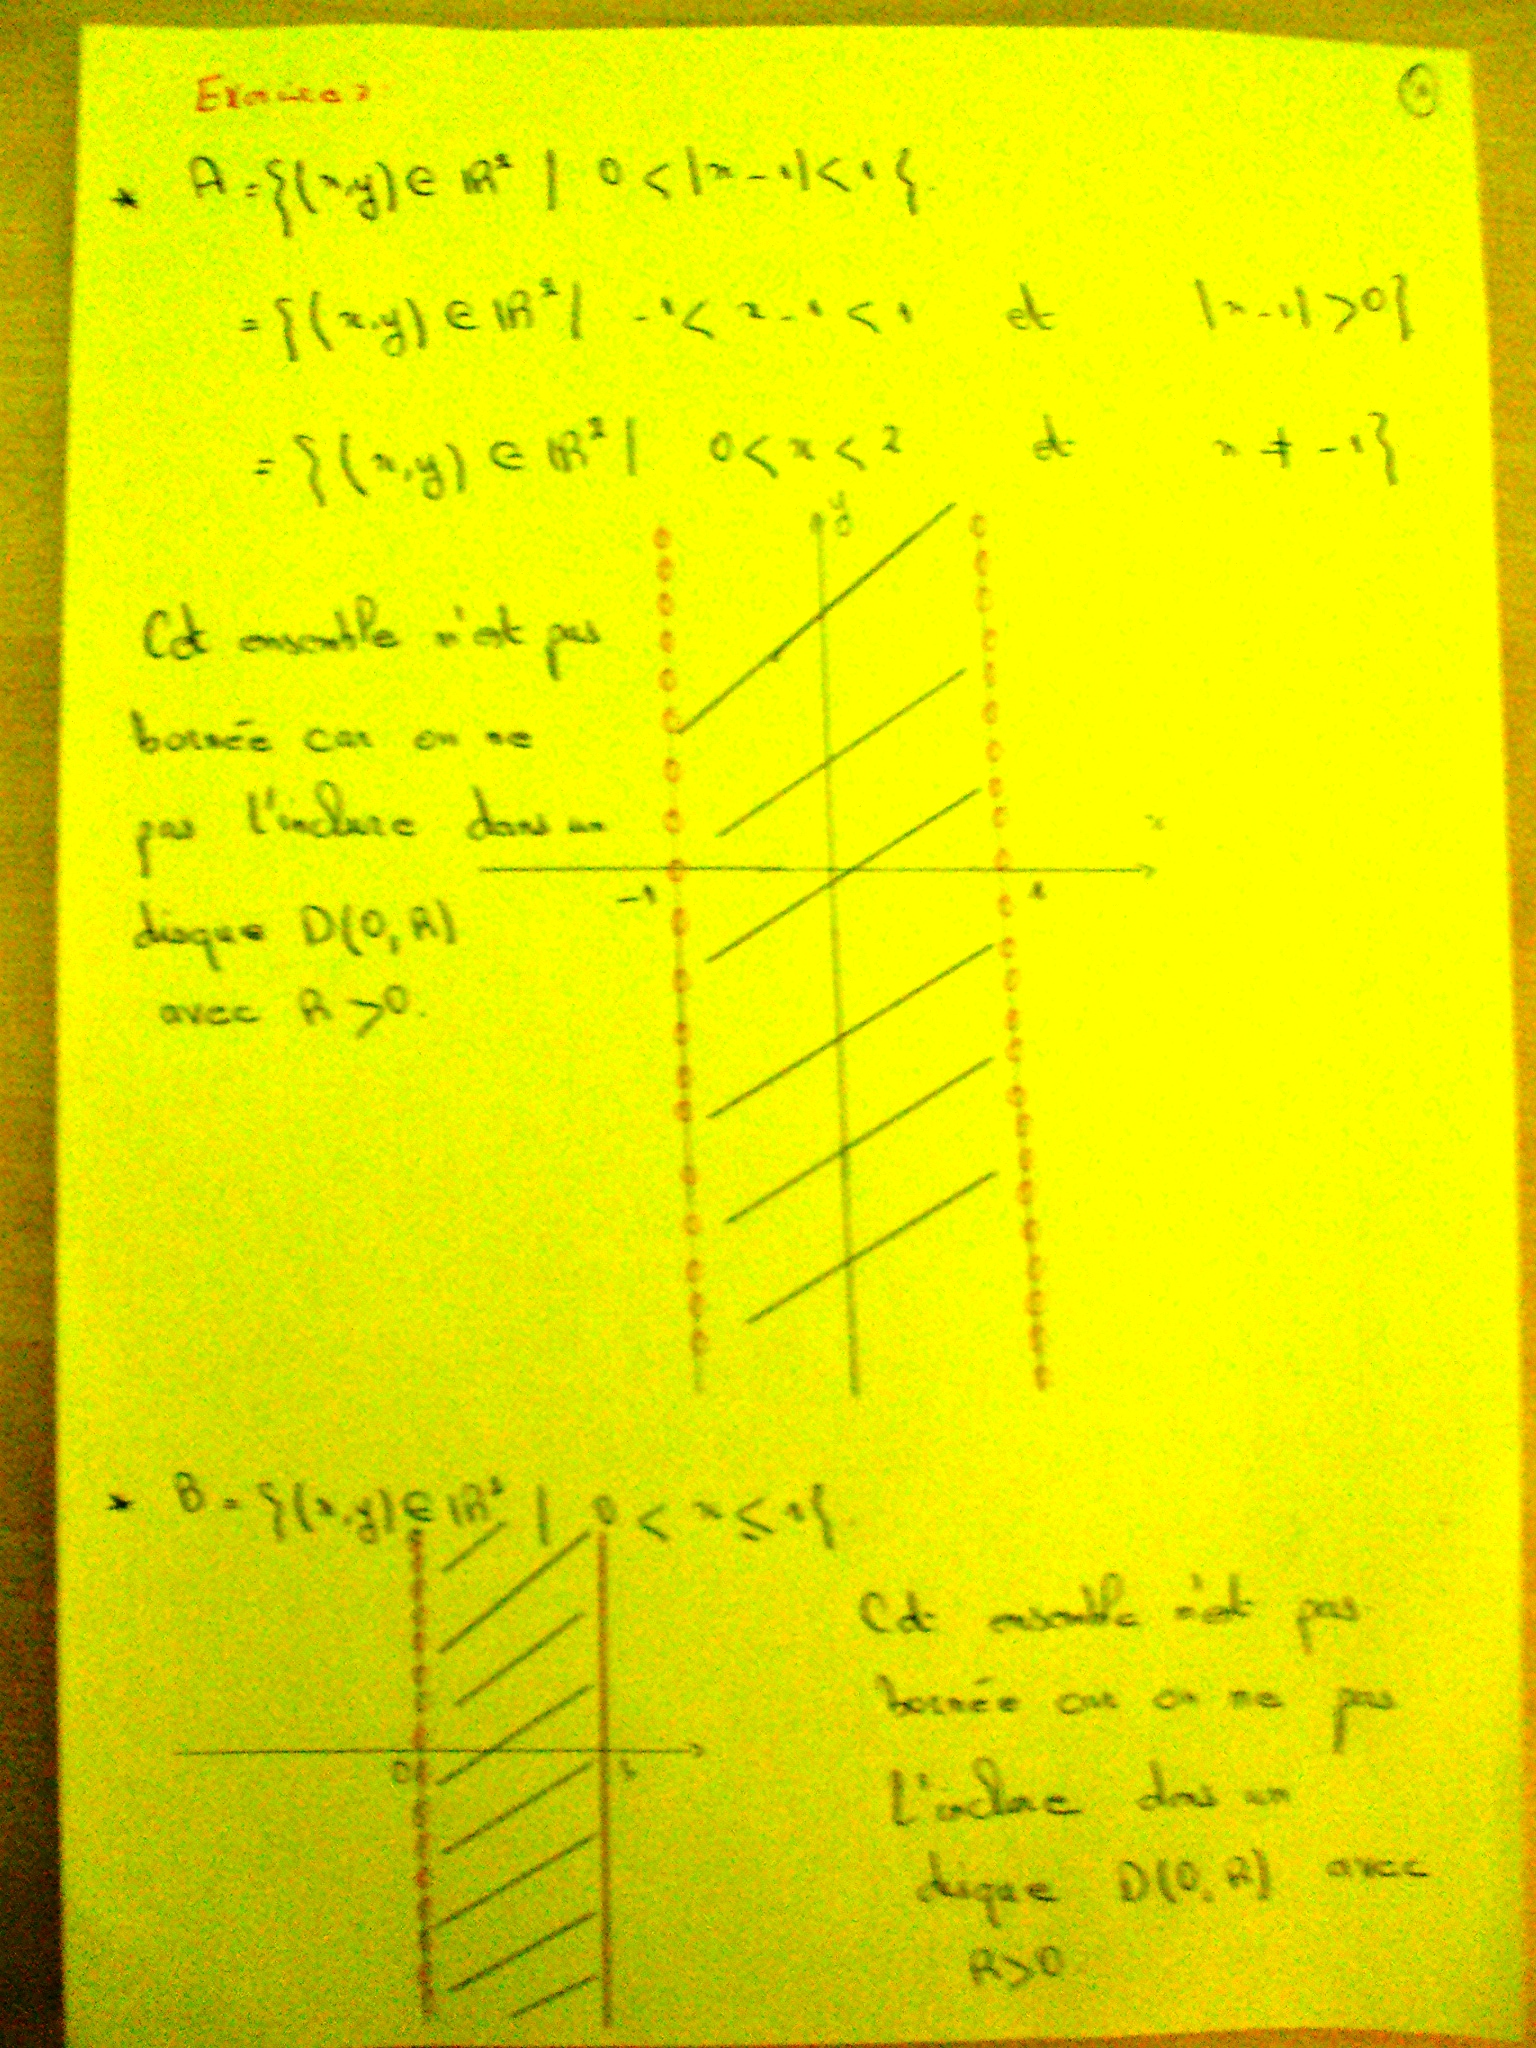 Exercice 2:
* A = {(x,y) ∈ ℝ² | 0 < |x-1| < 1}.
= {(x,y) ∈ ℝ² | -1 < x-1 < 1 et |x-1| > 0}
= {(x,y) ∈ ℝ² | 0 < x < 2 et x ≠ -1}
y
Cet ensemble n'est pas
bornée car on ne
pas l'inclure dans un
x
-1 1
disque D(0,R)
avec R > 0.
* B = {(x,y) ∈ ℝ² | 0 < x ≤ 1}.
Cet ensemble n'est pas
bornée car on ne pas
0 1
l'inclure dans un
disque D(0,R) avec
R > 0